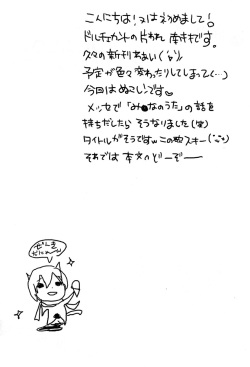 こんにちは！又ははじめまして！
ドルチェカントの片われ 南キです。
久々の新刊わぁい('v')
予定が色々変わったりしてしまって(…)
今回はぬこ
メッセで「み○なのうた」の話を
持ちだしたら そうなりました(笑)
タイトルがそうです この曲スキー
それでは 本文へどーぞー